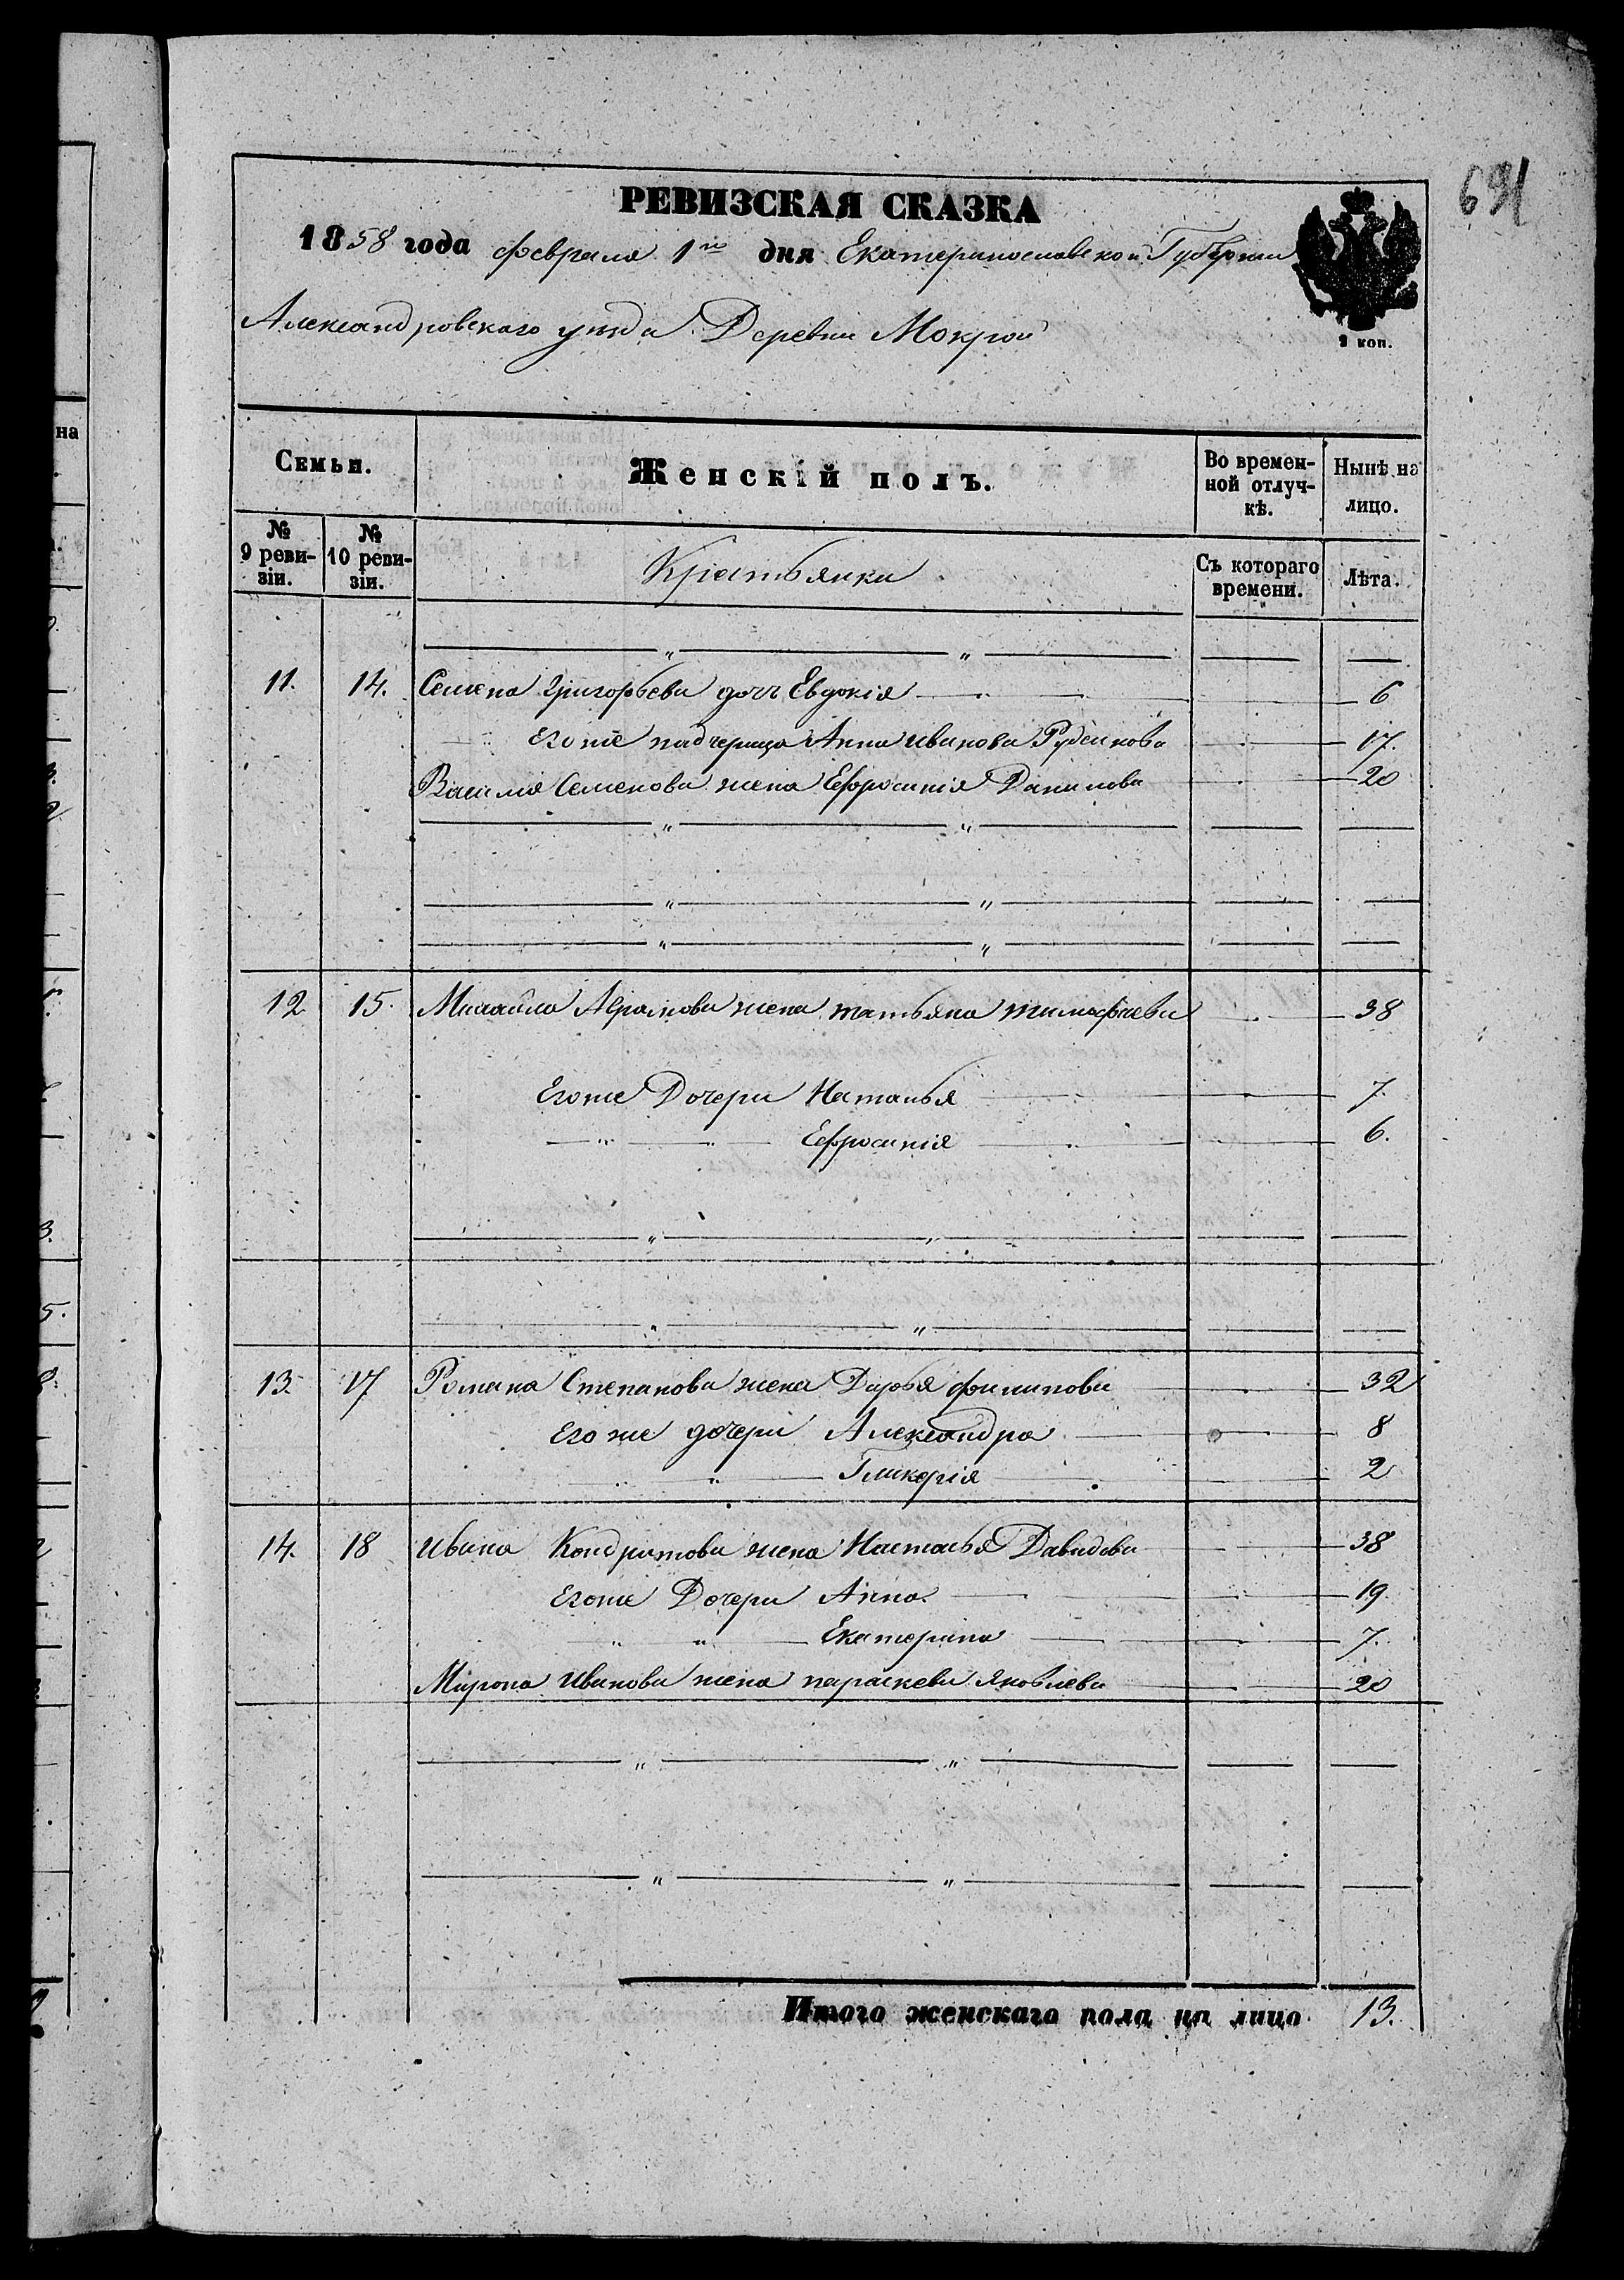 691
РЕВИЗСКАЯ СКАЗКА
1858 года февраля 1го дня Екатеринославской Губернии
Александровскаго уезда Деревни Мокрой
2 коп.
Семьи.
Женскій полъ.
Во времен-
ной отлуч-
кѣ.
Нынѣ на
лицо.
№
9 реви-
зіи.
№
10 реви-
зіи.
Крестьянки
Съ котораго
времени.
Лѣта.
11. 14. Семена Григорьева дочь Евдокія 6
Егоже падчерица Анна Иванова Руденкова 17.
Василія Семенова жена Ефросинія Данилова 20
12 15. Михайла Абрамова жена татьяна тимофеева 38
Егоже Дочери Наталья 7.
Ефросинія 6.
13. 17 Романа Степанова жена Дарья филипова 32
Его же дочери Александра 8
Гликерія 2
14. 18 Ивана Кондратова жена Настасья Давидова 38
Егоже Дочери Анна 19.
Екатерина 7.
Мирона Иванова жена параскева Яковлева 20
Итого женскаго пола на лицо 13.
на